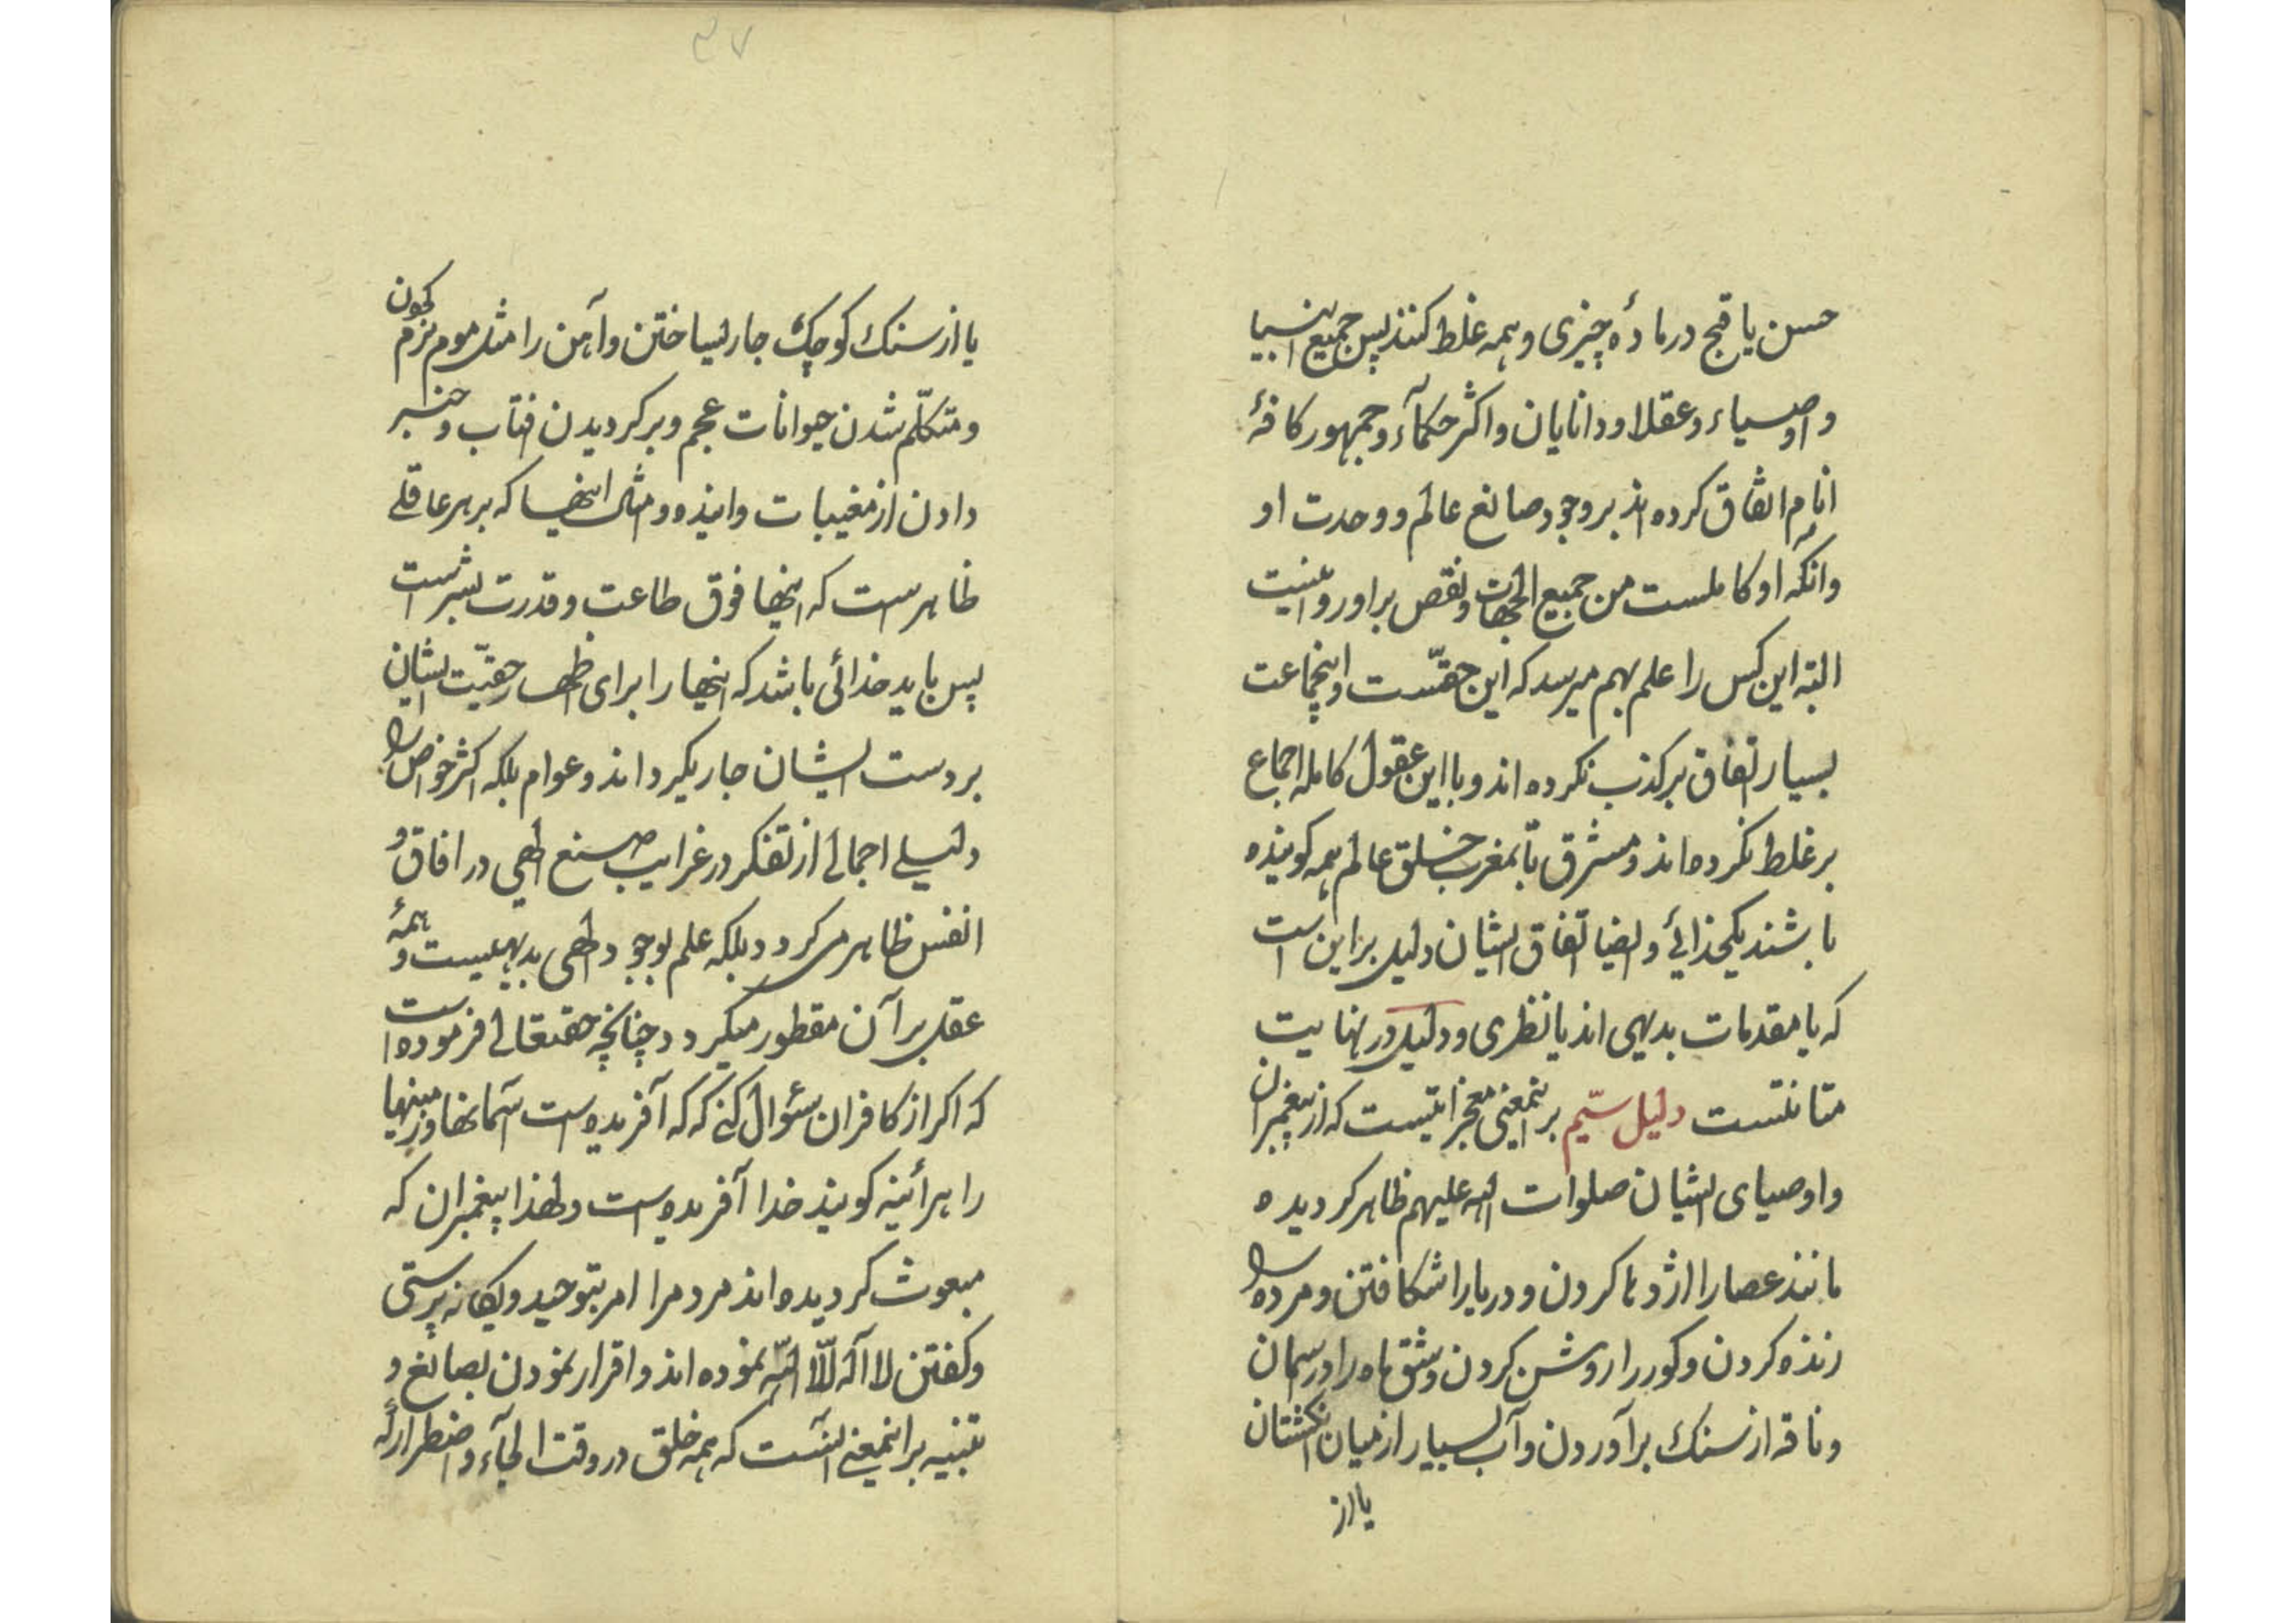 حسن یا قبح در مادهٔ چیزی و همه غلط کنند پس جمیع انبیا
و اوصیاء و عقلا و دانایان و اکثر حکمآء و جمهور کافهٔ
انام اتفاق کرده اند بر وجود صانع عالم و وحدت او
و انکه او کاملست من جمیع الجهات و نقص بر او روا نیست
البته این کس را علم بهم میرسد که این حقّست و اینجماعت
بسیار اتفاق بر کذب نکرده اند و با این عقول کامله اجماع
بر غلط نکرده اند و مشرق تا بمغرب خلق عالم همه کوینده
باشند بیکخدائی و ایضا اتفاق ایشان دلیل بر این است
که یا مقدمات بدیهی اند یا نظری و دلیل در نهایت
متانتست دلیل سیّم بر اینمعنی معجزاتیست که از پیغمبران
و اوصیای ایشان صلوات الله علیهم ظاهر کردیده
مانند عصا را اژدها کردن و دریا را شکافتن و مرده را
زنده کردن و کور را روشن کردن و شق ماه در اسمان
و ناقه از سنك بر آوردن و آب بسیار از میان انکشتان
یا از
۳۷
یا از سنك کوچك جاری ساختن و آهن را مثل موم نرم کردن
و متکلّم شدن حیوانات عجم و برکردیدن افتاب و خبر
دادن از مغیبات و اینده و مثل اینها که بر هر عاقلی
ظاهر است که اینها فوق طاعت و قدرت بشر است
پس باید خدائی باشد که اینها را برای اظهار حقیّت ایشان
بر دست ایشان جاری کرداند و عوام بلکه اکثر خواص را
دلیلی اجمالی از تفکر در غرایب صنع الهی در افاق و
انفس ظاهر می کردد بلکه علم بوجود الهی بدیهیست و همهٔ
عقل بر آن مفطور میکردد چنانچه حقتعالی فرموده است
که اکر از کافران سئوال کنی که که آفریده است آسمانها و زمینها
را هر آئینه کویند خدا آفریده است و لهذا پیغمبران که
مبعوث کردیده اند مردم را امر بتوحید و یکانه پرستی
و کفتن لا اله الّا الله نموده اند و اقرار نمودن بصانع و
تنبیه بر اینمعنی آنست که همه خلق در وقت الجآء و اضطرار که